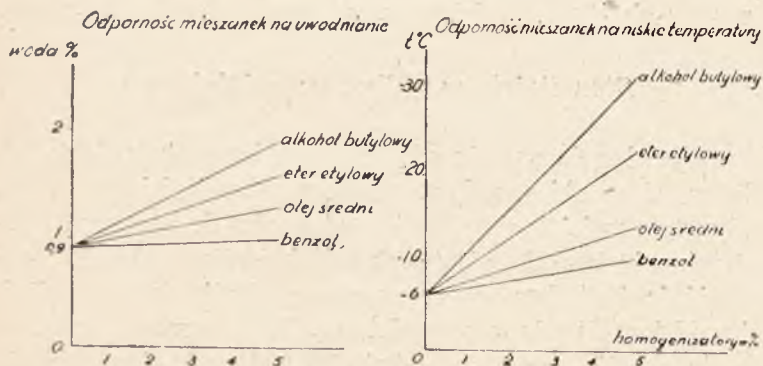 Odporność mieszanek na uwodnianie
woda %
2
1
0,9
0
1 2 3 4 5
alkohol butylowy
eter etylowy
olej sredni
benzol
Odporność mieszanek na niskie temperatury
t°C
-30
-20
-10
-6
0 1 2 3 4 5
alkohol butylowy
eter etylowy
olej sredni
benzol
homogenizatory w %